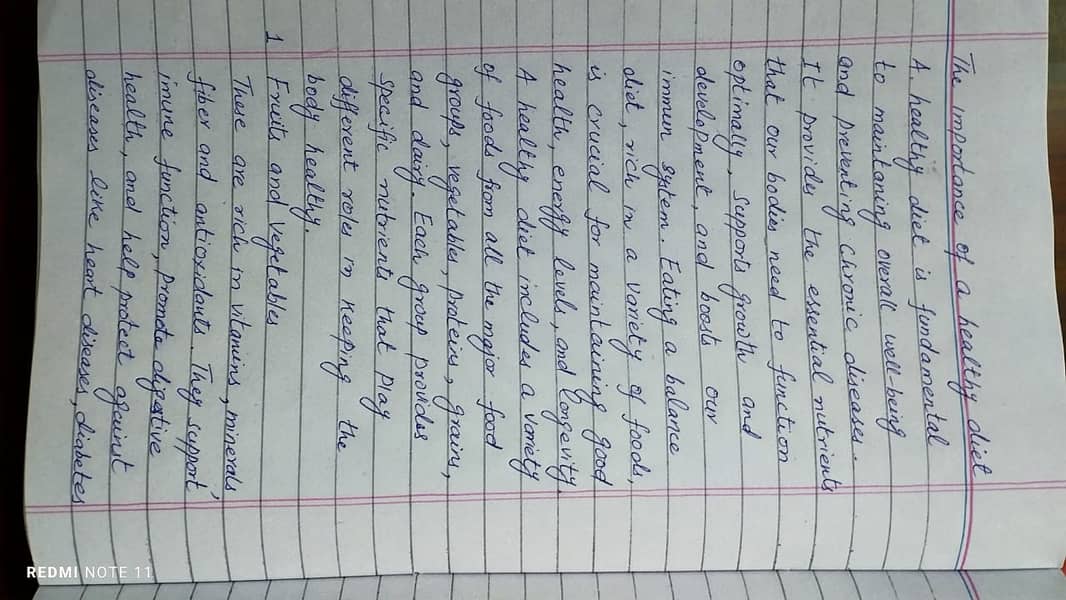 The importance of a healthy diet
A healthy diet is fundamental
to maintaining overall well-being
and preventing chronic diseases.
It provides the essential nutrients
that our bodies need to function
optimally, supports growth and
development, and boosts our
immun system. Eating a balance
diet, rich in a variety of foods,
is crucial for maintaining good
health, energy levels, and longevity.
A healthy diet includes a variety
of foods from all the major food
groups, vegetables, proteins, grains,
and dairy. Each group provides
specific nutrients that play
different roles in keeping the
body healthy.
1 Fruits and vegetables
These are rich in vitamins, minerals,
fiber and antioxidants. They support
imune function, promote digestive
health, and help protect against
diseases like heart diseases, diabetes
REDMI NOTE 11